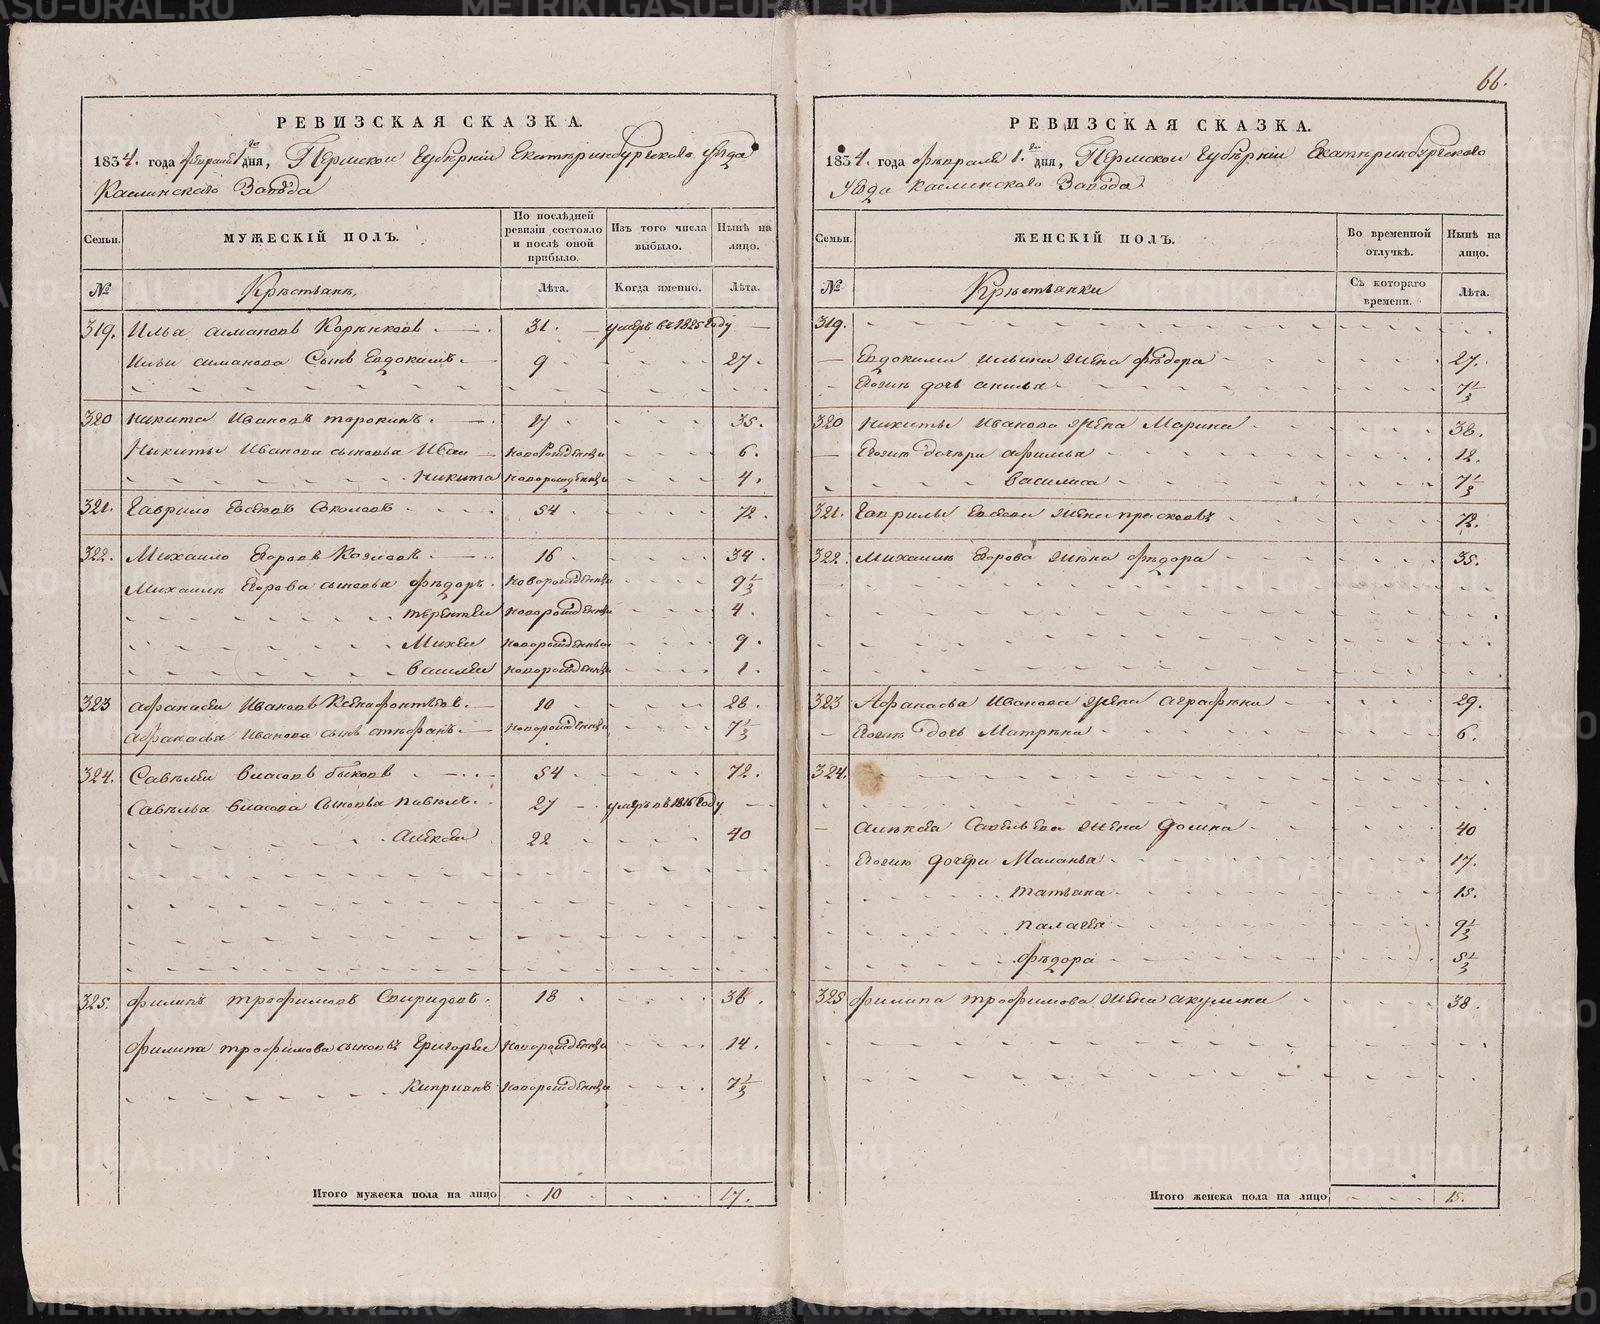 66.
РЕВИЗСКАЯ СКАЗКА.
1834. года февраля 1го дня, Пермской Губерніи Екатеринбургскаго уезда
Каслинскаго Завода
Семьи.
МУЖЕСКІЙ ПОЛЪ.
По послѣдней ревизіи состояло и послѣ оной прибыло.
Изъ того числа выбыло.
Нынѣ на лицо.
№
Крѣстьянѣ,
Лѣта.
Когда именно.
Лѣта.
319. Илья Корѣнковъ. 31. умеръ въ 1825 году
Ильи сынъ Евдокимъ. 9 27.
320 Никита Ивановъ 17 35.
Никиты Иванова сыновья Иван новорожденны 6.
Никита новорожденны 4.
321. Гаврило Евсеевъ Соколовъ 54 72.
322. Михаило Егоровъ Козловъ 16 34.
Михаилы Егорова сыновья Фѣдоръ. новорожденны 9 1/3
терентеи новорожденны 4.
Михеи новорожденны 9.
василеи новорожденны 1.
323 афанасеи Ивановъ Ксенофонтовъ. 10 28.
Афанасья Иванова сынъ стефанъ. новорожденны 7 1/3
324. Савѣлеи власовъ быковъ 54 72.
Савѣлья власова сыновья павѣлъ. 27 умеръ въ 1816 году
Алексеи 22 40
325. филипъ трофимовъ Спиридовъ. 18 36.
филипа трофимова сыновья Григореи новорожденны 14.
Киприянъ новорожденны 7 1/2
Итого мужеска пола на лицо 10 17.
РЕВИЗСКАЯ СКАЗКА.
1834. года февраля 1.го дня, Пермской Губерніи Екатеринбургскаго
уезда каслинскаго Завода.
Семьи.
ЖЕНСКІЙ ПОЛЪ.
Во временной отлучкѣ.
Нынѣ на лицо.
№
Крѣстьянки
Съ котораго времени.
Лѣта.
319.
Евдокима ильина жена фѣдора 27.
Евоинѣ дочь 7 1/3
320 Никиты Иванова жена Марина 38.
Евоинѣ дочѣри афимья 12.
василиса 7 1/3
321. Гаврилы Евсеева жена прасковья 72.
322. михаилы Егорова жена фѣдора 35.
323 Афанасья Иванова жена аграфѣна 29.
Евоинѣ дочь Матрѣна 6.
324.
алѣксея Савельева жена домна 40
Евоинѣ дочѣри Маланья 17.
татьяна 15.
палагея 9 1/2
фѣдора 5 1/3
325 филипа трофимова жена акулина 38.
Итого женска пола на лицо 15.
METRIKI.GASO-URAL.RU